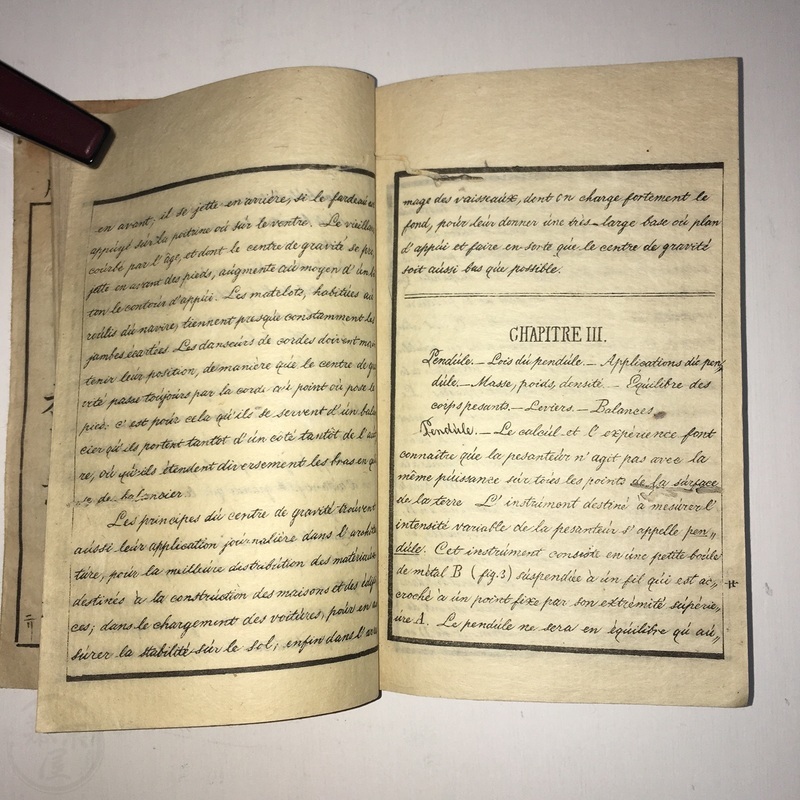 en avant; il se jette en arrière, si le fardeau est
appuyé sur la poitrine où sur le ventre. Le vieillard
courbé par l'âge, et dont le centre de gravité se pro
jette en avant des pieds, augmente au moyen d'un bâ
ton le contour d'appui. Les matelots, habitués au
roulis du navire, tiennent presque constamment les
jambes écartées. Les danseurs de cordes doivent main
tenir leur position, de manière que le centre de gra
vité passe toujours par la corde au point où pose le
pied: c'est pour cela qu'ils se servent d'un balan
cier qu'ils portent tantot d'un côté tantôt de l'aut
re, où qu'ils étendent diversement les bras en gui
se de balancier
Les principes du centre de gravité trouvent
aussi leur application journalière dans l'archite
ture, pour la meilleure distribution des matériaux
destinés à la construction des maisons et des édifi
ces; dans le chargement des voitures, pour en as
sûrer la stabilité sur le sol; enfin dans l'arri
mage des vaisseaux, dont on charge fortement le
fond, pour leur donner une très-large base où plan
d'appui et faire en sorte que le centre de gravité
soit aussi bas que possible.
CHAPITRE III.
Pendule.— Lois du pendule.— Applications du pen„
dule.— Masse, poids, densité.— Équilibre des
corps pesants.— Leviers.— Balances.
Pendule.— Le calcul et l'expérience font
connaître que la pesanteur n'agit pas avec la
même puissance sur tous les points de la surface
de la terre L'instrument destiné à mesurer l'
intensité variable de la pesanteur s'appelle pen„
dule. Cet instrument consiste en une petite boule
de métal B (fig.3) suspendue à un fil qui est ac„
croché à un point fixe par son extrémité supérie„
ure A. Le pendule ne sera en équilibre qu'au„